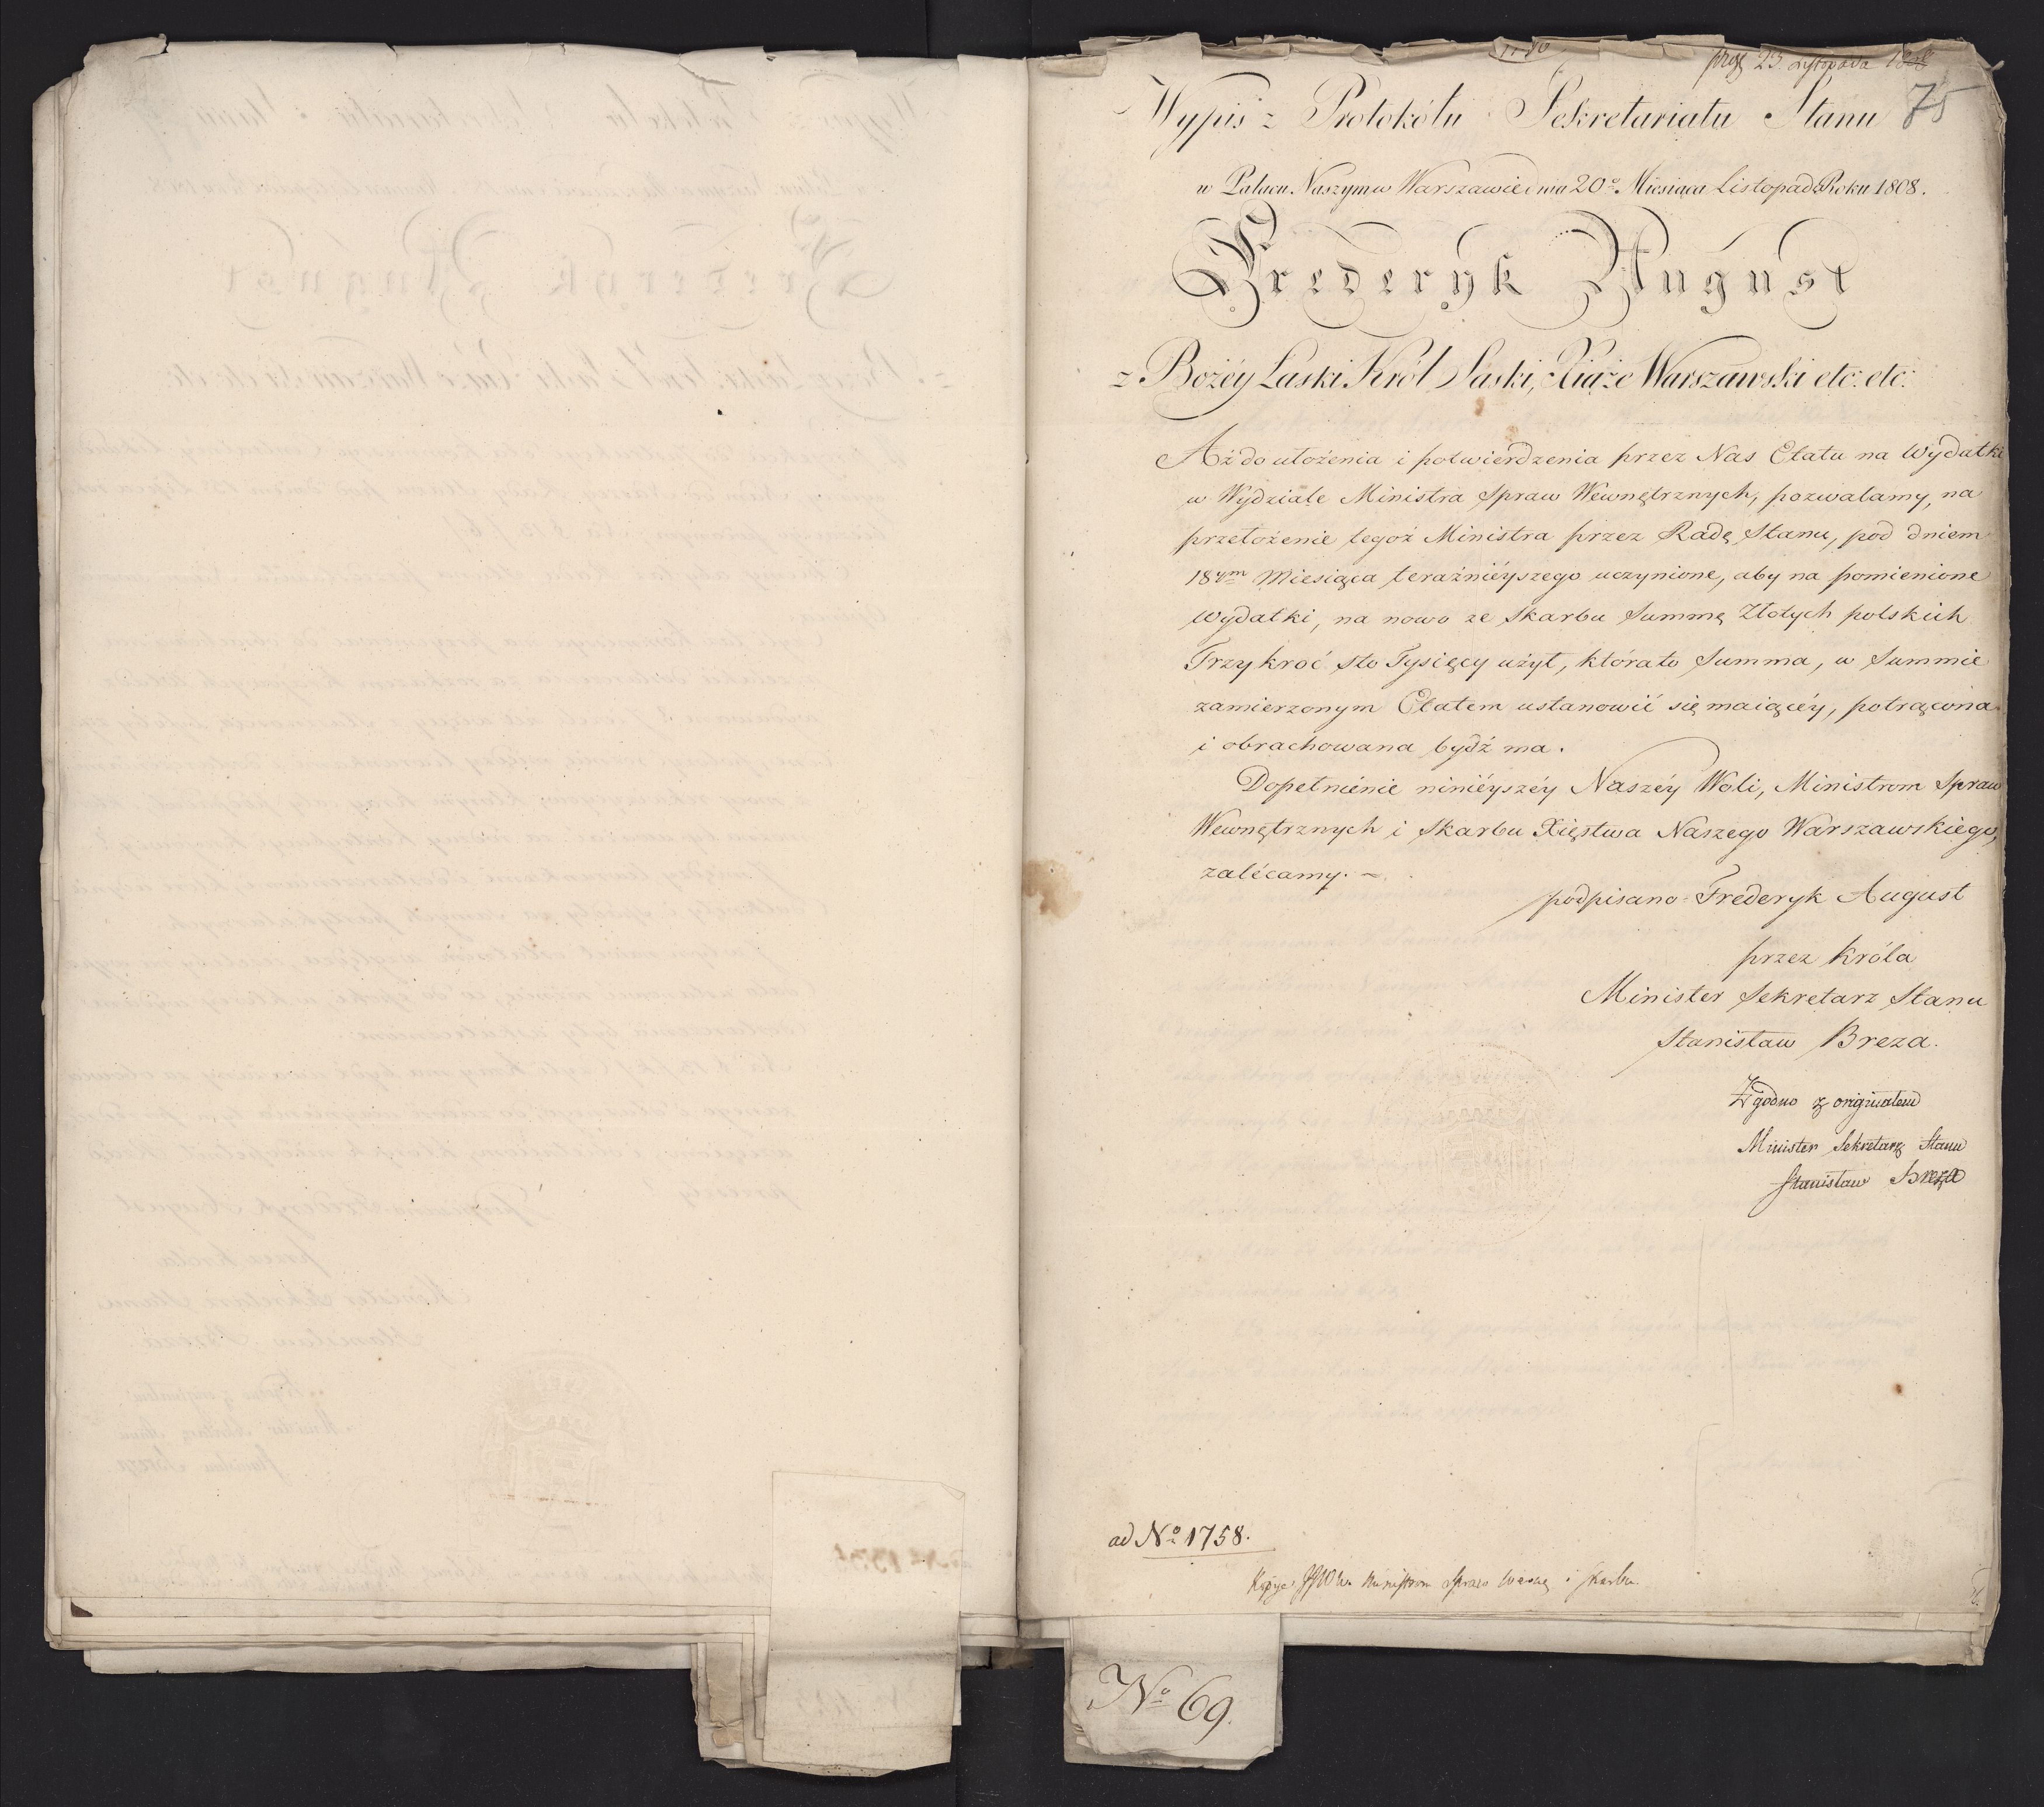 prez 23 Listopada 1808
75
Wypis z Protokółu Sekretariatu Stanu
w Pałacu Naszym w Warszawie dnia 20º Miesiąca Listopada Roku 1808.
Frederyk August
z Bożéy Łaski Król Saski, Xiąże Warszawski etc: etc:
Aż do ułożenia i potwierdzenia przez Nas Etatu na Wydatki
w Wydziale Ministra Spraw Wewnętrznych, pozwalamy, na
przełożenie tegoż Ministra przez Radę Stanu, pod dniem
18ym Miesiąca teraźniéyszego uczynione, aby na pomienione
wydatki, na nowo ze Skarbu Summę Złotych polskich
Trzykroć sto Tysięcy użył, którato Summa, w Summie
zamierzonym Etatem ustanowić się maiącéy, potrącona
i obrachowana bydź ma.
Dopełniénie niniéyszéy Naszéy Woli, Ministrom Spraw
Wewnętrznych i Skarbu Xięstwa Naszego Warszawskiego,
zalécamy. -
podpisano: Frederyk August
przez Króla
Minister Sekretarz Stanu
Stanisław Breza.
Zgodno z originałem
Minister Sekretarz Stanu
Stanisław Breza
ad Nº 1758.
Ministrom Spraw i Skarbu
Nº 69.